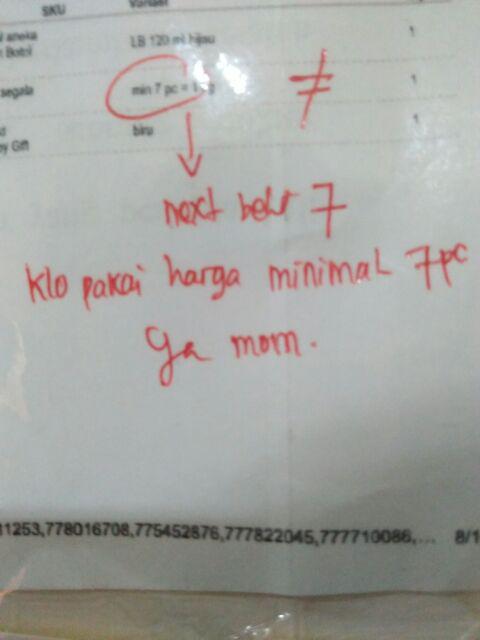 SKU Variasi
aneka LB 120 ml hijau 1
Botol
segala min 7 pc = 1 ≠ 1
biru 1
Gift
next beli 7
Klo pakai harga minimal 7pc
ya mom.
778016708,775452876,777822045,777710086,... 8/1